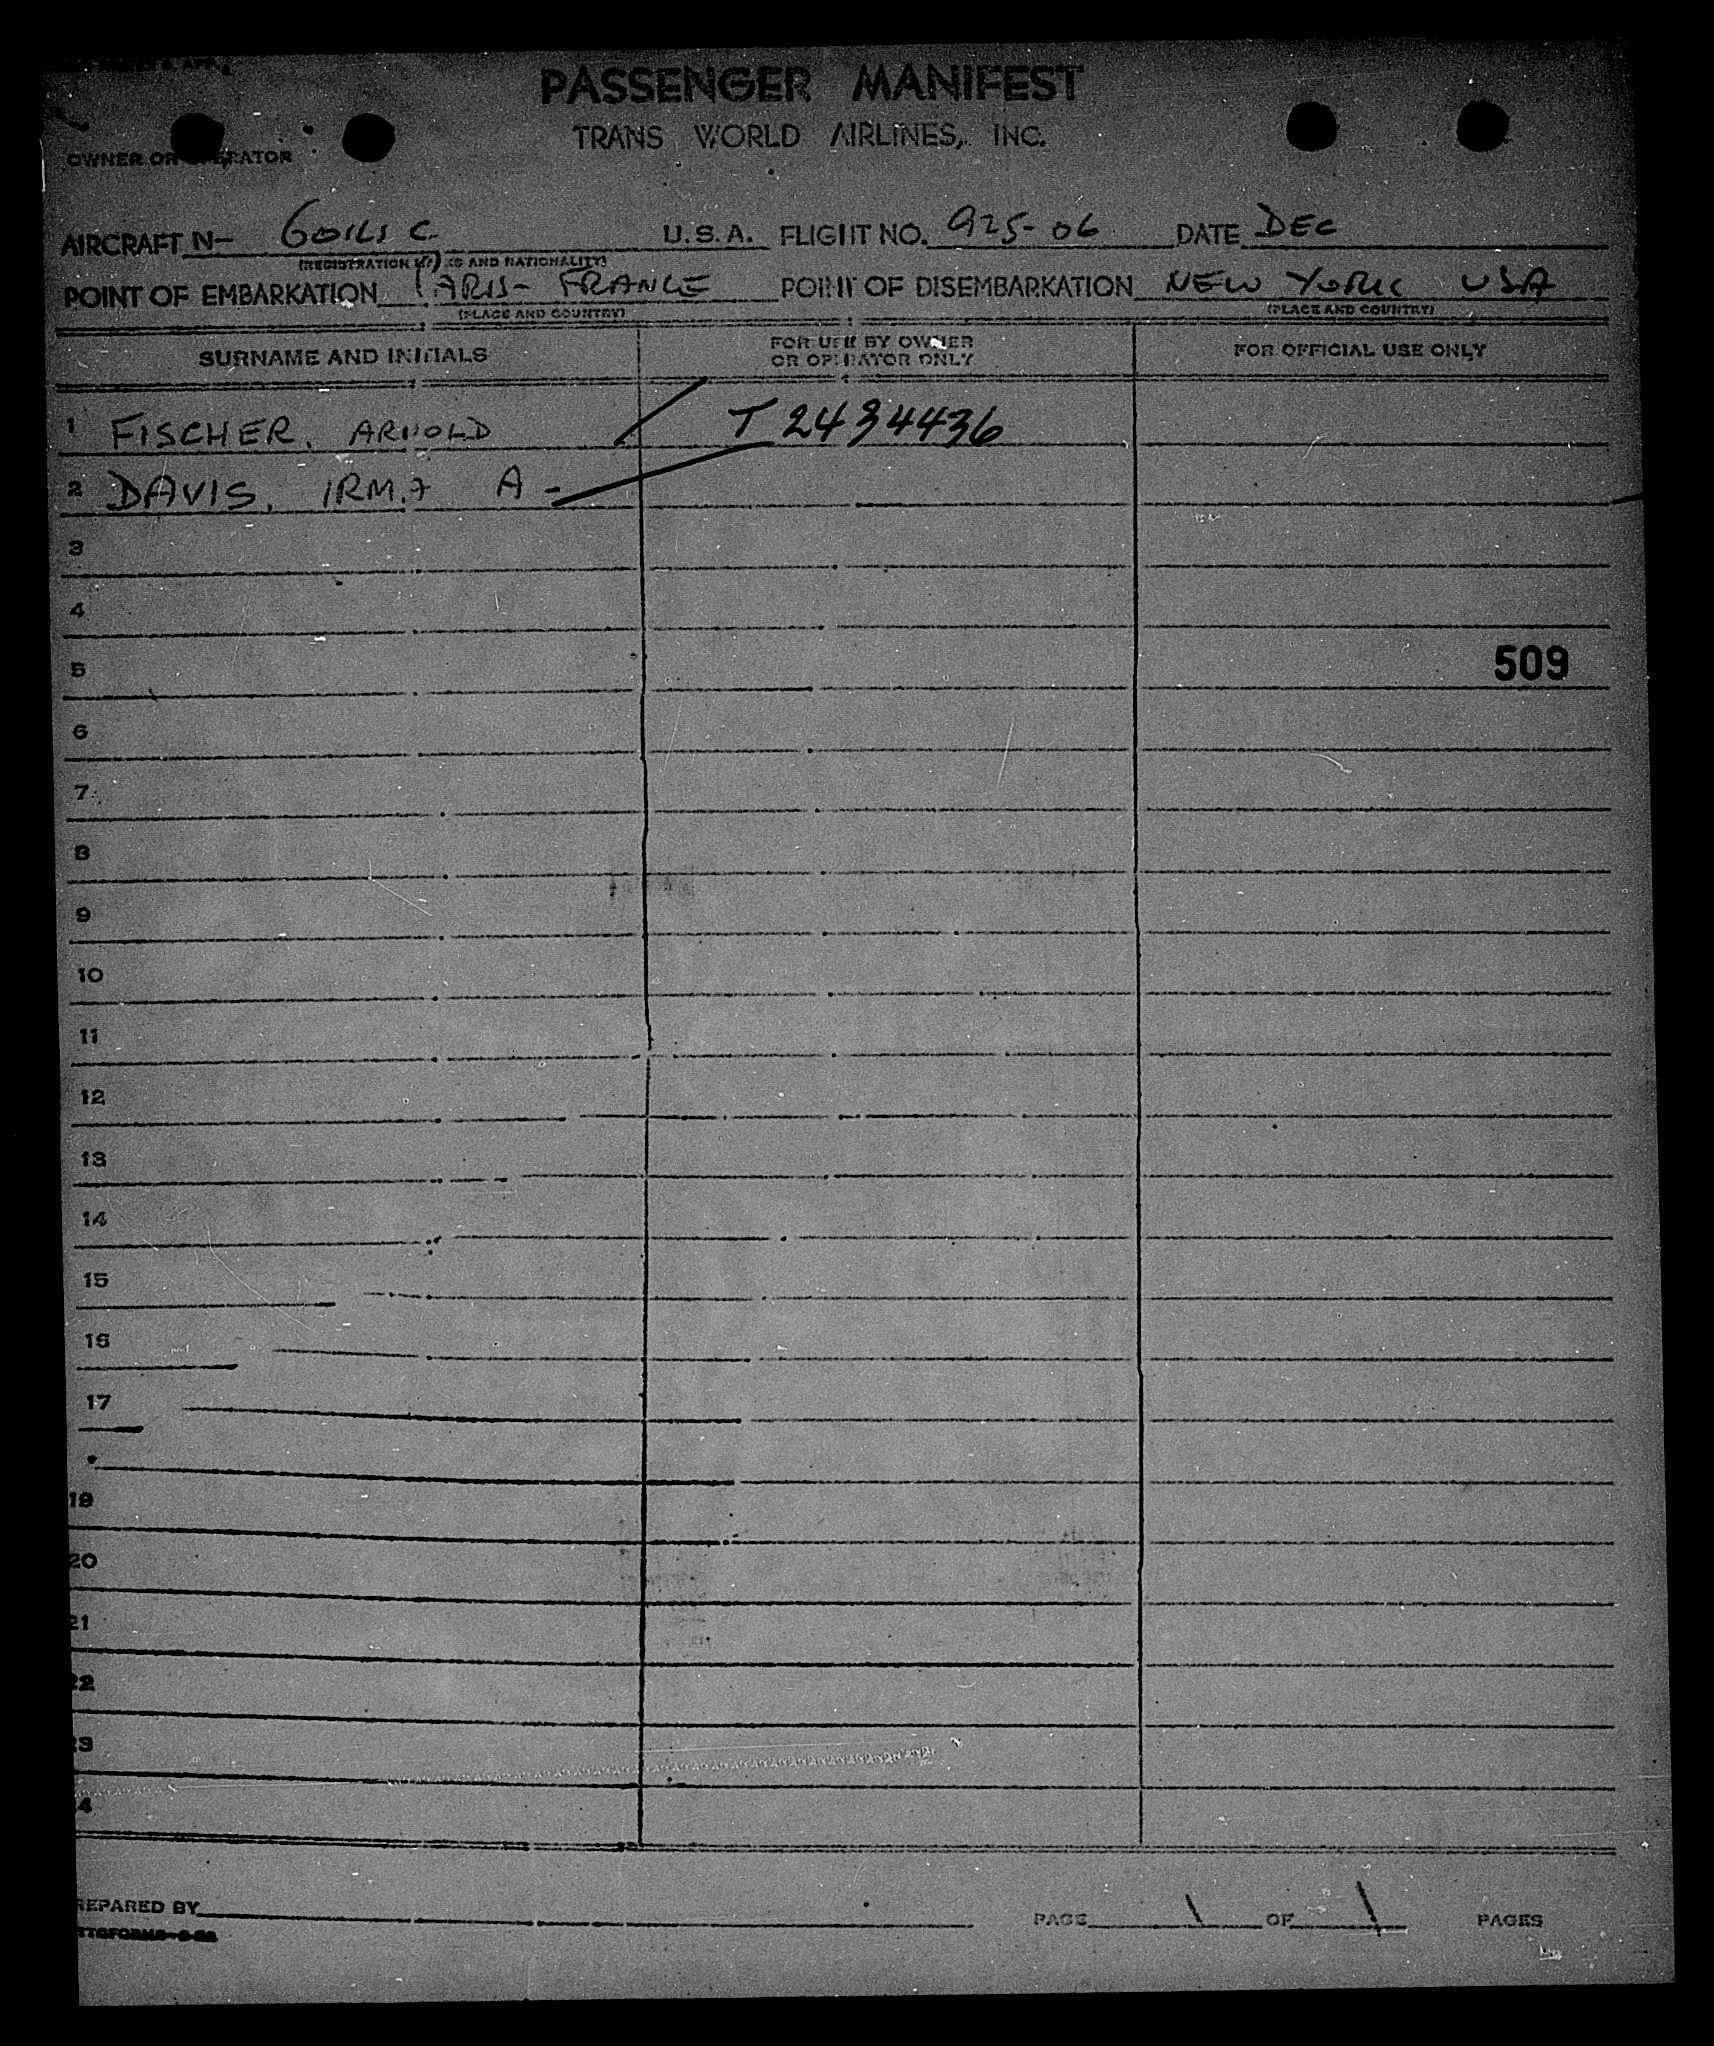 PASSENGER MANIFEST
TRANS WORLD AIRLINES, INC.
OWNER OR OPERATOR
AIRCRAFT N- U.S.A. FLIGHT NO. 925-06 DATE DEC
(REGISTRATION MARKS AND NATIONALITY)
POINT OF EMBARKATION PARIS - FRANCE POINT OF DISEMBARKATION NEW YORK USA
(PLACE AND COUNTRY) (PLACE AND COUNTRY)
SURNAME AND INITIALS FOR USE BY OWNER OR OPERATOR ONLY FOR OFFICIAL USE ONLY
1 FISCHER, ARNOLD T 2434436
2 DAVIS, IRMA A -
3
4
5 509
6
7
8
9
10
11
12
13
14
15
16
17
19
20
21
22
23
24
PREPARED BY PAGE 1 OF 1 PAGES